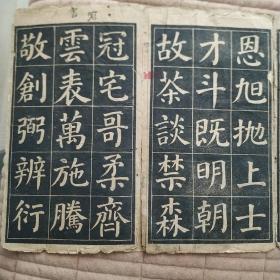 恩旭拋上士
才斗既明朝
故茶談禁森
冠宅哥柔齊
雲表萬施騰
敬創弼辨衍